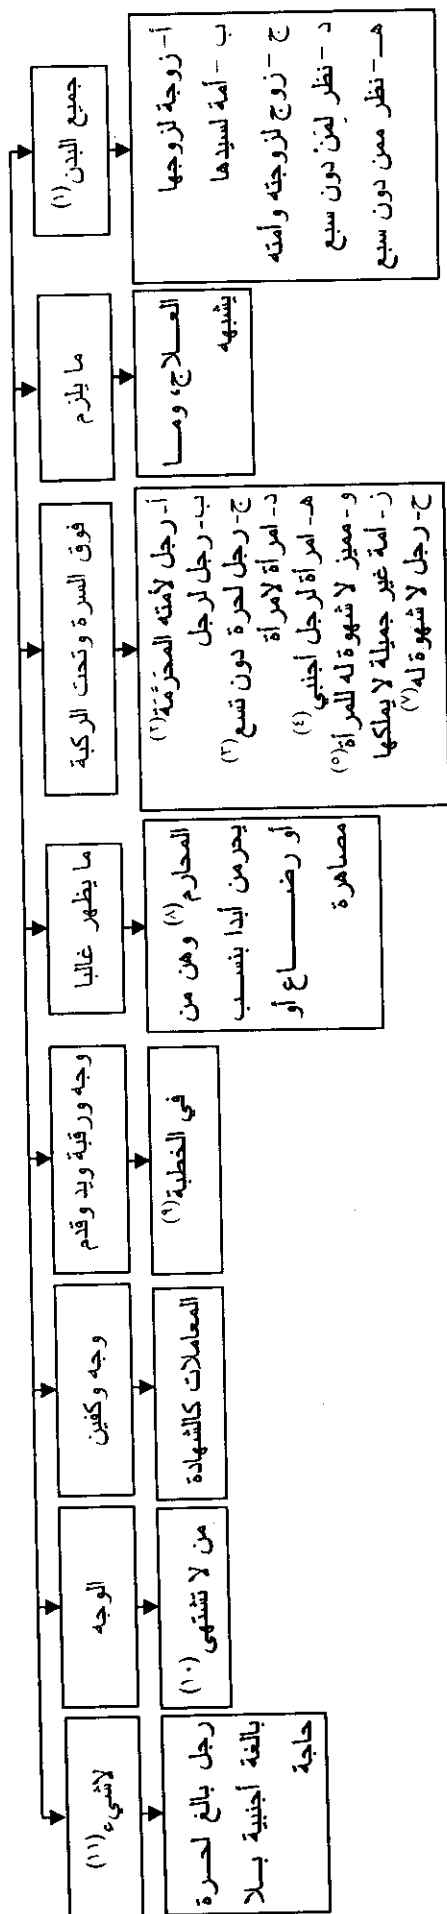 جميع البدن (١)
أ- زوجة لزوجها
ب - أمة لسيدها
ج - زوج لزوجته وأمته
د - نظر لِمَنْ دون سبع
هـ - نظر ممن دون سبع
ما يلزم
العـــلاج، ومـــا
يشبهه
فوق السرة وتحت الركبة
أ- رجل لأمته المحرَّمة (٢)
ب- رجل لرجل
ج- رجل لحرة دون تسع (٣)
د- امرأة لامرأة
هـ- امرأة لرجل أجنبي (٤)
و- مميز لا شهوة له للمرأة (٥)
ز- أمة غير جميلة لا يملكها
ح- رجل لا شهوة له (٧)
ما يظهر غالبا
المحارم (٨) وهن من
يحرمن أبدا بنســب
أو رضــــــاع أو
مصاهرة
وجه ورقبة ويد وقدم
في الخطبة (٩)
وجه وكفين
المعاملات كالشهادة
الوجه
من لا تشتهى (١٠)
لاشيء (١١)
رجل بالغ لحــرة
بالغة أجنبية بــلا
حاجة